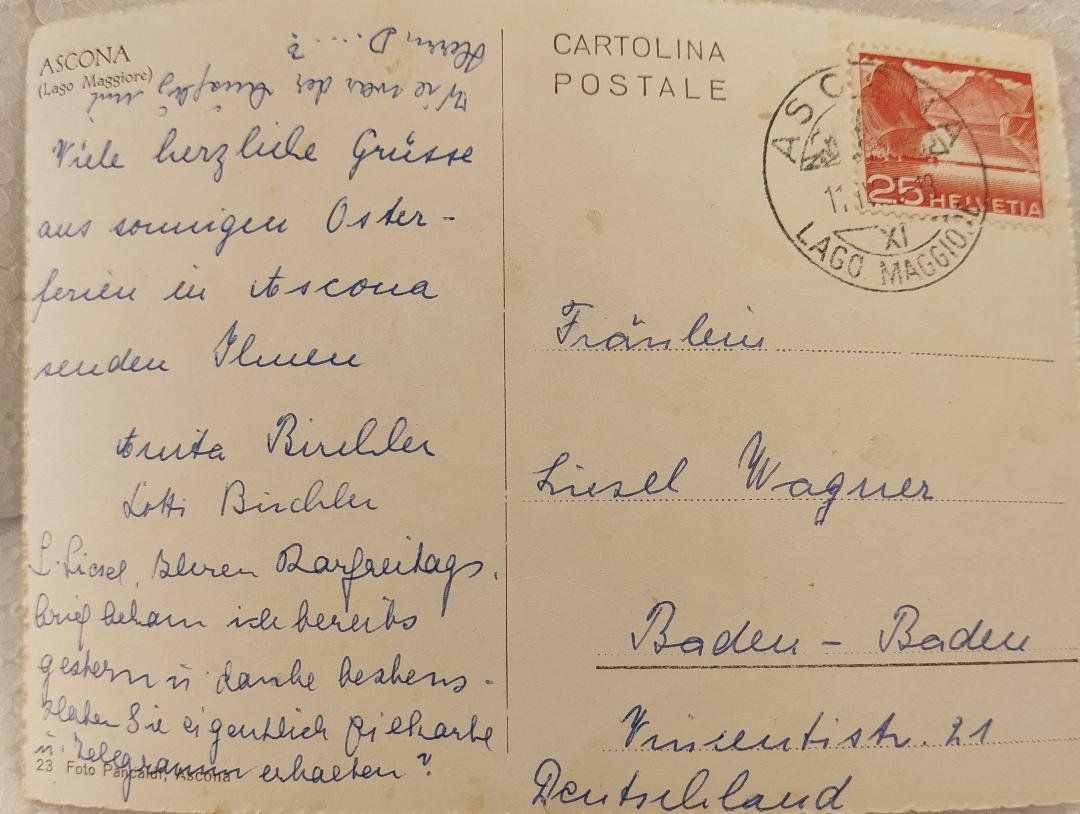 ASCONA
(Lago Maggiore)
Viele herzliche Grüsse
aus sonnigen Oster-
ferien in Ascona
senden Ihnen
Anita Birchler
Lotti Birchler
L. Liesel, Ihren Karfreitags-
brief bekam ich bereits
gestern u. danke bestens -
Haben Sie eigentlich Eilkarte
u. Telegramm erhalten?
Wie war der Ausflug mit
Herrn D....?
23 Foto Pancaldi, Ascona
CARTOLINA
POSTALE
ASCONA
LAGO MAGGIORE
XI
25 HELVETIA
Fräulein
Liesel Wagner
Baden - Baden
Vincentistr. 21
Deutschland